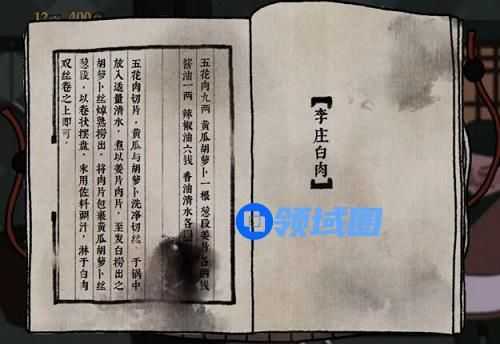 400
【李庄白肉】
五花肉九两 黄瓜胡萝卜一根 葱段姜片各两钱
酱油一两 辣椒油六钱 香油清水各
五花肉切片，黄瓜与胡萝卜洗净切丝，于锅中
放入适量清水，煮以姜片肉片，至发白捞出之
胡萝卜丝焯熟捞出，将肉片包裹黄瓜胡萝卜丝
葱段，以卷状摆盘，末用佐料调汁，淋于白肉
双丝卷之上即可。
领域圈